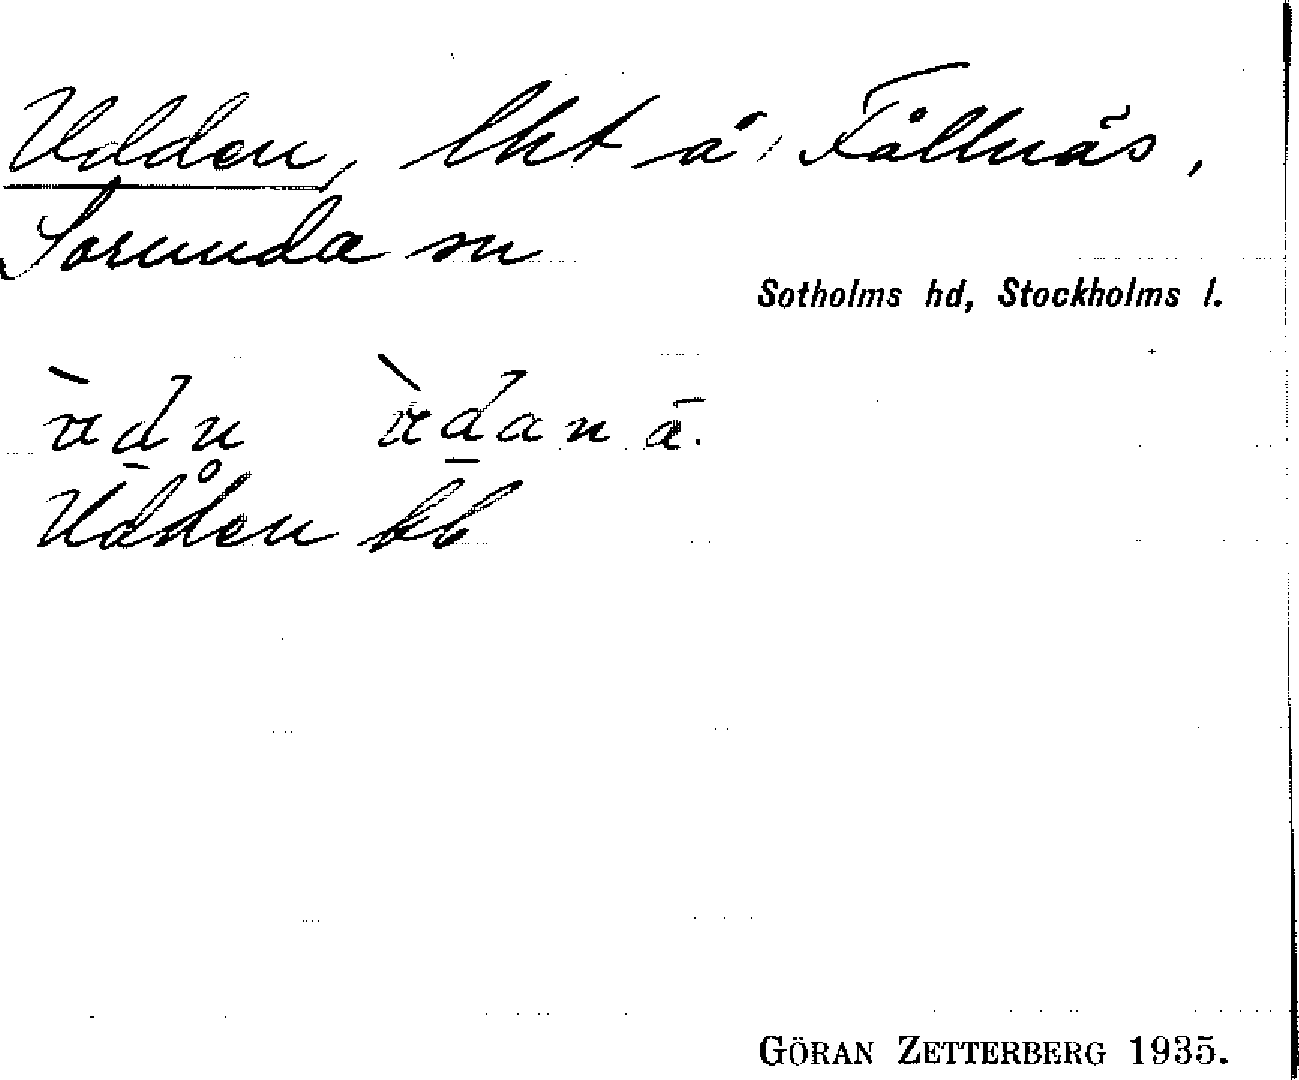 Udden, lkt å Fållnäs,
Sorunda sn
Sotholms hd, Stockholms l.
Uddden kb
GÖRAN ZETTERBERG 1935.